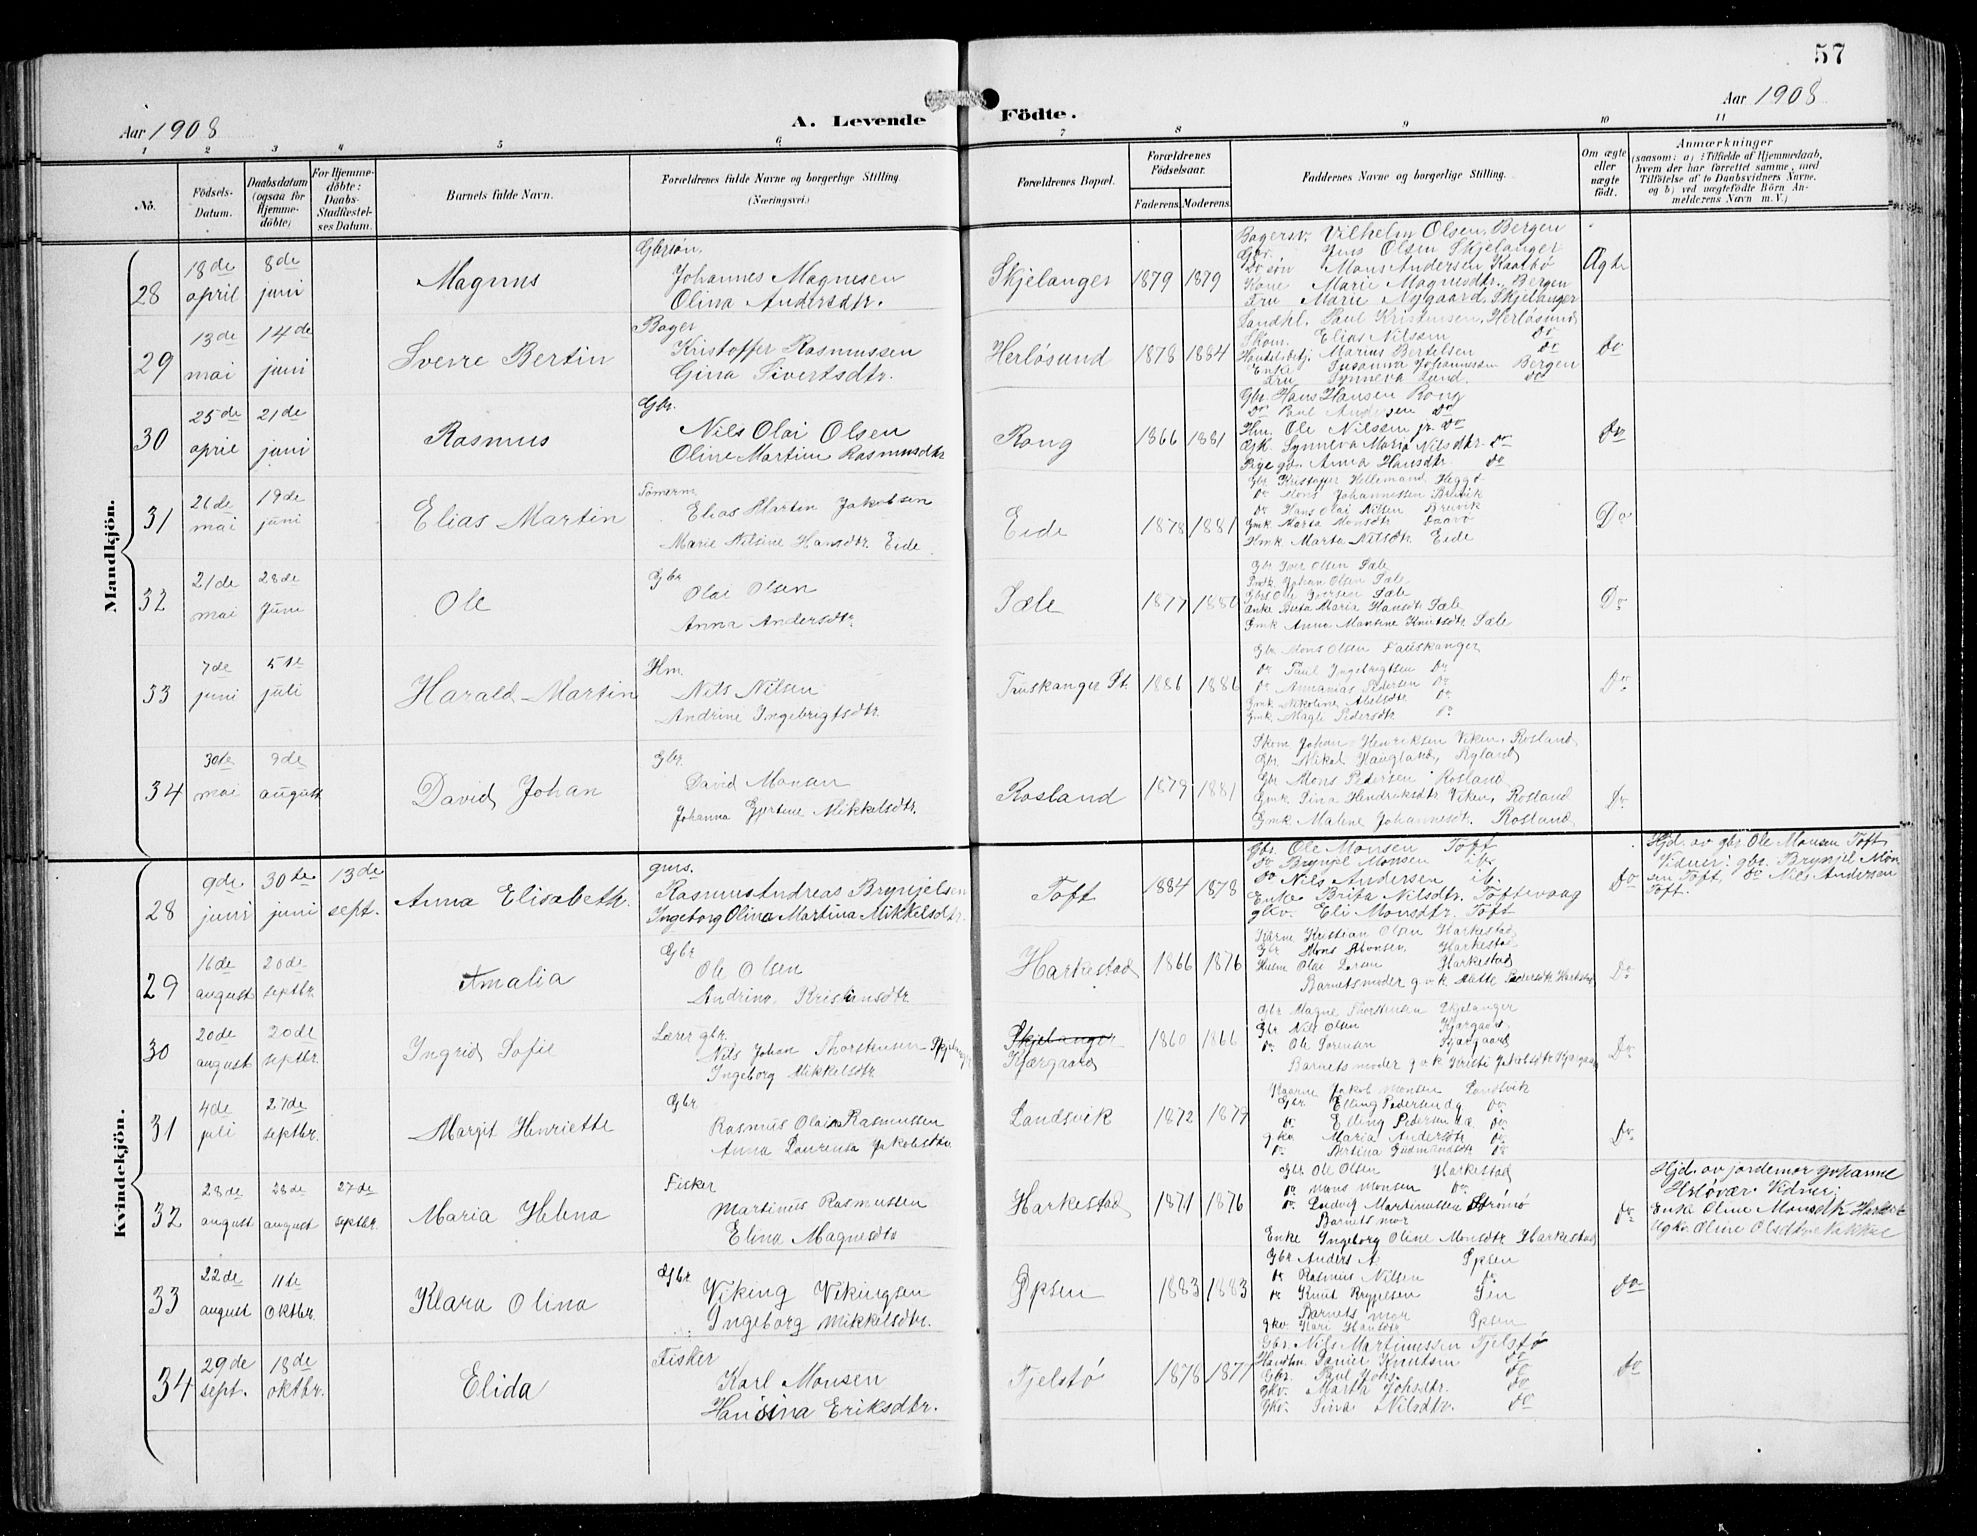 57
Aar 1908
A. Levende Födte.
Aar 1908
1 2 3 4 5 6 7 8 9 10 11
No.
Födsels-Datum.
Daabsdatum (ogsaa for Hjemmedöbte)
For Hjemmedöbte: Daabs-Stadfæstelses Datum.
Barnets fulde Navn.
Forældrenes fulde Navne og borgerlige Stilling (Næringsvei.)
Forældrenes Bopæl.
Forældrenes Födselsaar.
Faderens. Moderens.
Faddernes Navne og borgerlige Stilling.
Om ægte eller uægte födt.
Anmærkninger
(saasom: a) i Tilfælde af Hjemmedaab, hvem der har forrettet samme, med Tilföielse af to Daabsvidners Navne, og b) ved uægtefödte Börn Anmelderens Navn m. V.)
Mandkjön.
28 18de april 8de juni Magnus
Gbrsøn.
Johannes Magnusen
Olina Andersdtr.
Skjelanger 1879 1879
Bagersv. Vilhelm Olsen, Bergen
Gbr. Jens Olsen Skjelanger
Do søn Mons Andersen Kaarbø
Kone Marie Magnesdtr. Bergen
Fru Marie Nygaard, Skjelanger
Ægte
29 13de mai 14de juni Sverre Bertin
Bager
Kristoffer Rasmussen
Gina Sivertsdtr.
Herløsund 1878 1884
Landhl. Paul Kristensen, Herløsund
Skom. Elias Nilssen do
Handelsbetj. Marius Bertelsen do
Enke Susanna Johannessen Bergen
Fru Synneva Lund do
do
30 25de april 21de juni Rasmus
Gbr.
Nils Olai Olsen
Oline Martine Rasmusdtr
Rong 1866 1881
Gbr. Hans Hansen Rong
Do Paul Andersen do
Hm. Ole Nilssen jr. do
Gk. Synneva Maria Nilsdtr. do
Pige gv. Anna Hansdtr do
do
31 26de mai 19de juni Elias Martin
Tømrerm
Elias Martin Jakobsen
Marie Nilsine Hansdtr. Eide
Eide 1878 1881
Gbr Kristoffer Hellemand Heggø
Do Mons Johannessen Breivik
Do Hans Olai Nilsen Breivik
Gmk Marta Monsdtr
Hmk Marta Nilsdtr. Eide
Do
32 21de mai 28de Juni Ole
Gbr
Olai Olsen
Anna Andersdtr.
Sæle 1877 1880
Gbr Iver Olsen Sæle
Johan Olsen Sæle
Ole Iversen Sæle
Enke Berta Maria Hansdtr Sæle
Gmk Anna Martine Knutsdtr Sæle
Do
33 7de juni 5te juli Harald Martin
Hm
Nils Nilsen
Andrine Ingebrigtsdtr.
Fauskanger St. 1886 1886
Gbr Mons Olsen Fauskanger
Do Paul Ingebrigtsen Do
Do Annanias Pedersen Do
Gmk Nikoline Abelsdtr Do
Gmk Magle Pedersdtr do
Do
34 30te mai 9de august David Johan
Gbr.
David Monsen
Johanna Gjertine Mikkelsdtr.
Rosland 1879 1881
Skom Johan Henriksen Viken, Rosland
Gbr. Mikal Haugland, Ryland
Gbr Mons Pedersen Rosland
Gmk Sina Hendriksdtr Viken, Rosland
Gmk Malene Johannesdt. Rosland
Do
Kvindekjön.
28 9de juni 30te juni 13de sept. Anna Elisabeth.
gmrs.
Rasmus Andreas Brynjelsen
Ingeborg Olina Martina Mikkelsdtr.
Toft 1884 1878
Gbr. Ole Monsen Toft
Do Brynjel Monsen ib.
Do Nils Andersen ib.
Enke Brita Nilsdtr. Toftevaag
gkv. Eli Monsdtr. Toft
Do
Hjd. av gbr Ole Monsen Toft
Vidner: gbr. Brynjel Mon
sen Toft, do Nils Andersen
Toft.
29 16de august 20de septbr. Amalia
Gbr
Ole Olsen
Andrina Kristensdtr.
Harkestad 1866 1876
Kaarm Kristian Olsen Harkestad
Gbr Mons Monsen Harkestad
Olai Larsen Harkestad
Barnets moder g.v.k Mette Pedersdtr Harkestad
Do
30 20de august 20de septbr. Ingrid Sofie
Lærer gbr.
Nils Johan Thorstensen Skjelanger
Ingeborg Mikkelsdtr.
Skjelanger
Kjærgaard 1860 1866
Gbr Magne Thorstensen Skjelanger
Gbr Nils Olsen Kjærgaard
Do Ole Sørensen Kjærgaard
Barnets moder g v k Kristi Jakobsdtr Kjærgaard
Do
31 4de juli 27de septbr. Margit Henriette
Gbr
Rasmus Olai Rasmussen
Anna Laurensa Jakobsdtr
Landsvik 1872 1879
Kaarm Jakob Monsen Landsvik
Gbr. Elling Pedersen do
Do Elling Pedersen do
gkv Maria Andersdtr do
Do Bertina Gudmundsdtr do
Do
32 28de august 28de august 27de septbr. Maria Helena
Fisker
Martinus Rasmussen
Elina Magnesdtr
Harkestad 1871 1876
Gbr. Ole Olsen Harkestad
Do Mons Monsen do
Do Ludvig Martinussen Strømø
Barnets mor
Enke Ingeborg Oline Monsdtr Harkestad
Do
Hjd. av jordemor Johanne
Herløvær Vidner:
Enke Oline Monsdtr Harkest
Ugkv. Oline Olsdtr
33 22de august 11te Oktbr. Klara Olina
Gbr
Viking Vikingsen
Ingeborg Mikkelsdtr.
Øpsen 1883 1883
Gbr Anders A Øpsen
Do Rasmus Nilsen do
Do Knut Brynjelsen Sen
Barnets mor
gkv Kari Hansdtr Øpsen
do
34 29de sept. 18de oktbr. Elida
Fisker
Karl Monsen
Hansina Eriksdtr.
Fjelstø 1878 1877
Gbr. Nils Martinussen Fjelstø
Handlm. Daniel Knutsen do
Gbr. Paul Johs. do
Gkv. Marta Johsdtr. do
Gkv. Sina Nilsdtr. do
do